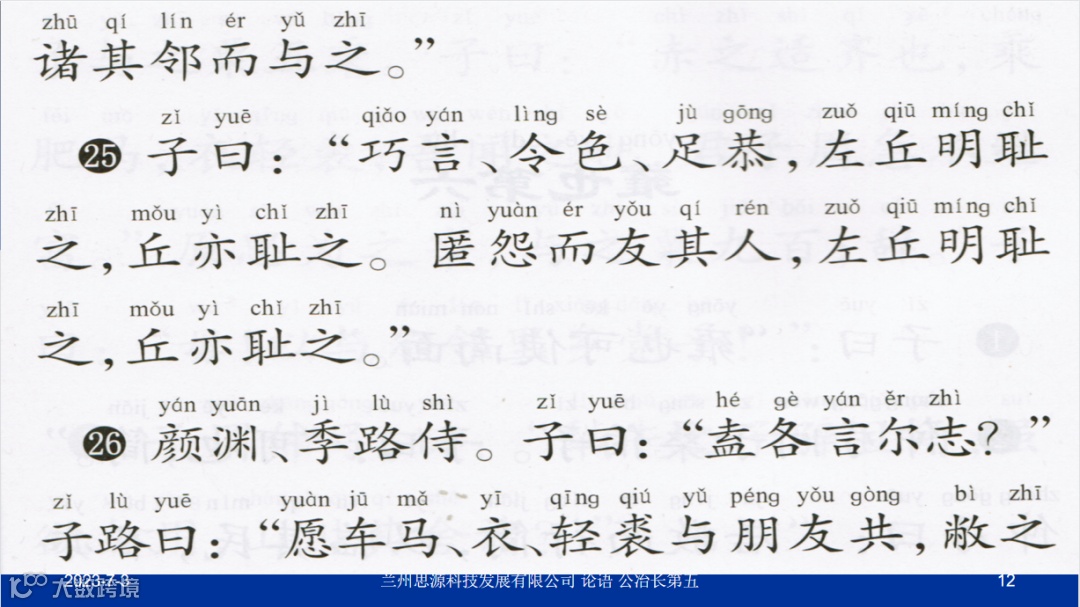 zhū qí lín ér yǔ zhī
诸其邻而与之。”
zǐ yuē qiǎo yán lìng sè jù gōng zuǒ qiū míng chǐ
25 子曰：“巧言、令色、足恭，左丘明耻
zhī mǒu yì chǐ zhī nì yuàn ér yǒu qí rén zuǒ qiū míng chǐ
之，丘亦耻之。匿怨而友其人，左丘明耻
zhī mǒu yì chǐ zhī
之，丘亦耻之。”
yán yuān jì lù shì zǐ yuē hé gè yán ěr zhì
26 颜渊、季路侍。子曰：“盍各言尔志？”
zǐ lù yuē yuàn jū mǎ yī qīng qiú yǔ péng yǒu gòng bì zhī
子路曰：“愿车马、衣、轻裘与朋友共，敝之
2023-7-3 兰州思源科技发展有限公司 论语 公冶长第五 12
大数跨境